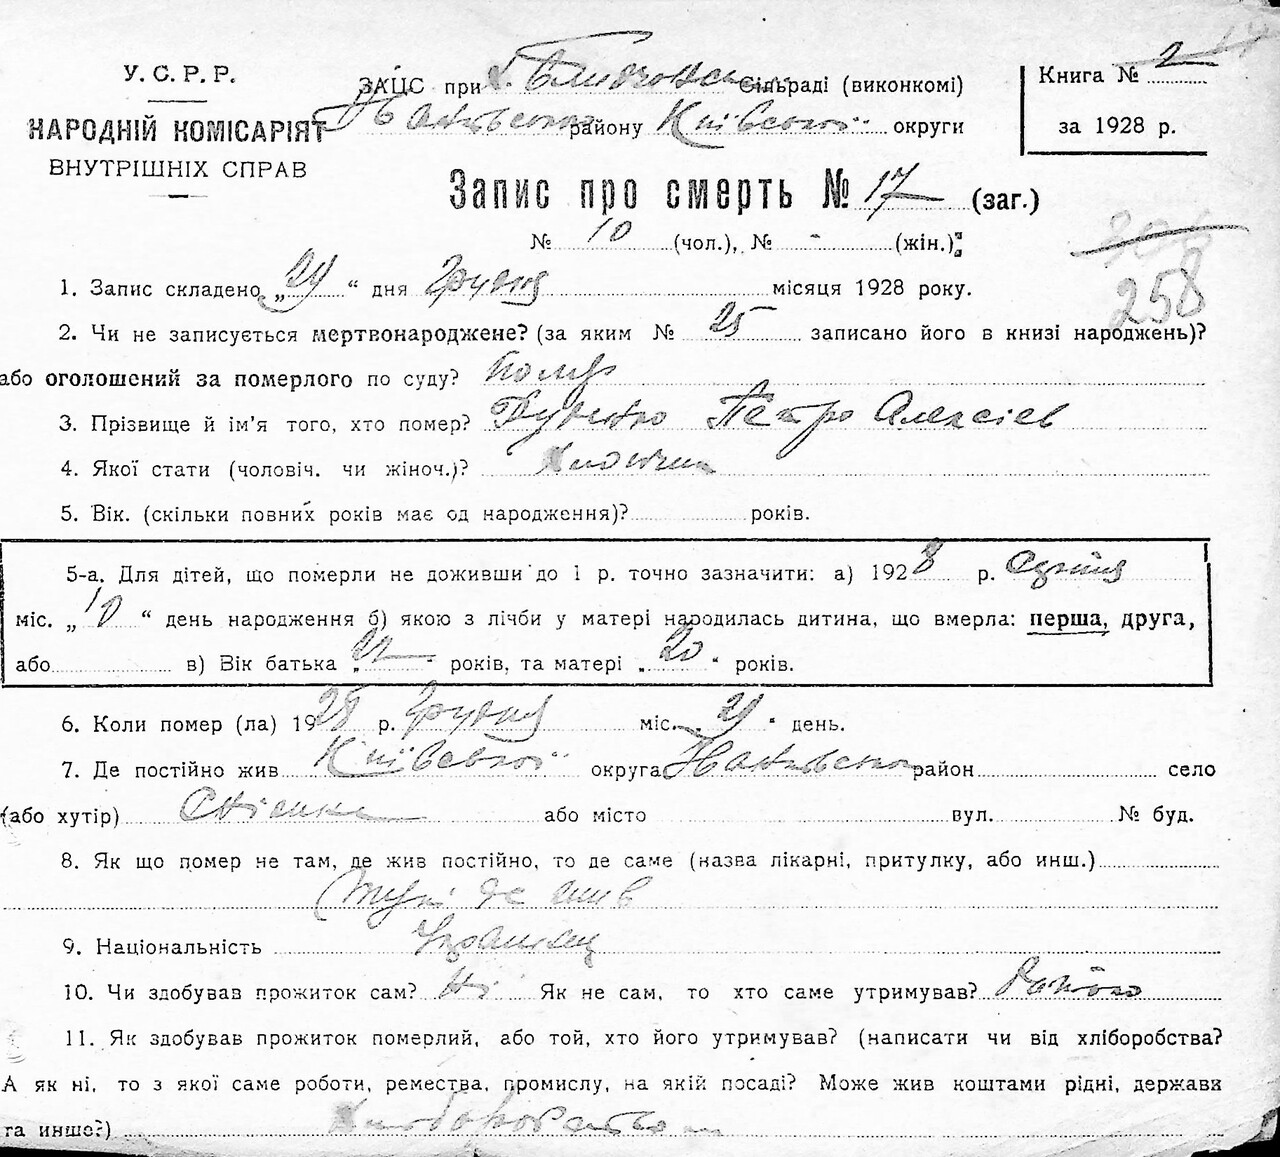 У. С. Р. Р.
НАРОДНІЙ КОМІСАРІЯТ
ВНУТРІШНІХ СПРАВ
ЗАЦС при сільраді (виконкомі)
району Київської округи
Книга №
за 1928 р.
Запис про смерть № 17 (заг.)
№ 10 (чол.), № - (жін.)
258
1. Запис складено „29“ дня Грудня місяця 1928 року.
2. Чи не записується мертвонароджене? (за яким № 25 записано його в книзі народжень)?
або оголошений за померлого по суду? Помер
3. Прізвище й ім'я того, хто помер? Петро Алексієв
4. Якої стати (чоловіч. чи жіноч.)?
5. Вік. (скільки повних років має од народження)? років.
5-а. Для дітей, що померли не доживши до 1 р. точно зазначити: а) 1928 р.
міс. „10“ день народження б) якою з лічби у матері народилась дитина, що вмерла: перша, друга,
або в) Вік батька „ “ років, та матері „20“ років.
6. Коли помер (ла) 1928 р. Грудня міс. „29“ день.
7. Де постійно жив Київської округа район село
(або хутір) або місто вул. № буд.
8. Як що помер не там, де жив постійно, то де саме (назва лікарні, притулку, або инш.)
Там де жив
9. Національність Українец
10. Чи здобував прожиток сам? Ні Як не сам, то хто саме утримував? Батько
11. Як здобував прожиток померлий, або той, хто його утримував? (написати чи від хліборобства?
А як ні, то з якої саме роботи, ремества, промислу, на якій посаді? Може жив коштами рідні, держави
та инше?) Хліборобством